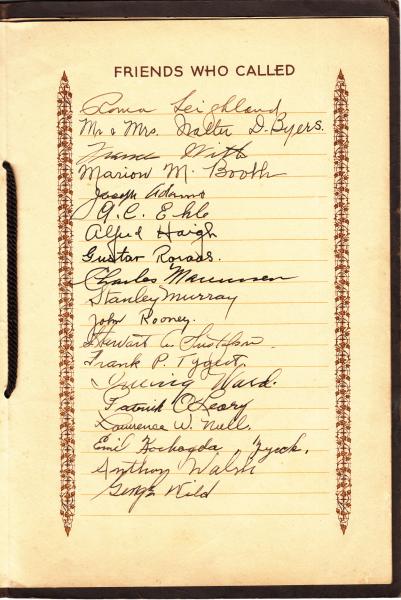 FRIENDS WHO CALLED
Roma Leighland
Mr & Mrs. Walter D. Byers.
Witt
Marion M. Booth
Joseph Adams
A.C. Ekle
Alfred Haigh
Gustav
Charles
Stanley Murray
John Rooney.
Stewart A. Gustafson
Frank P. Tygert.
Irving Ward.
Patrick O'Leary
Lawrence W. Nell.
Emil
Anthony Walsh
George Wild